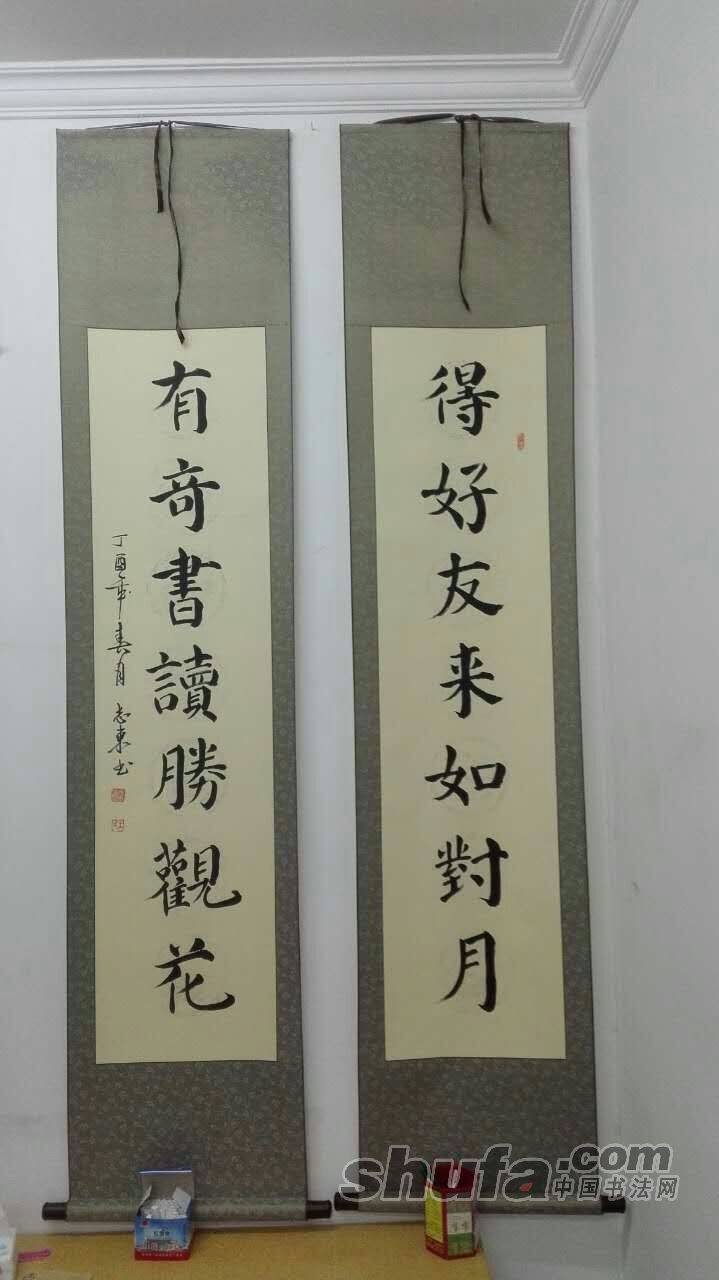 得好友来如對月
有奇書讀勝觀花
丁酉年春月 志東书
shufa.com
中国书法网